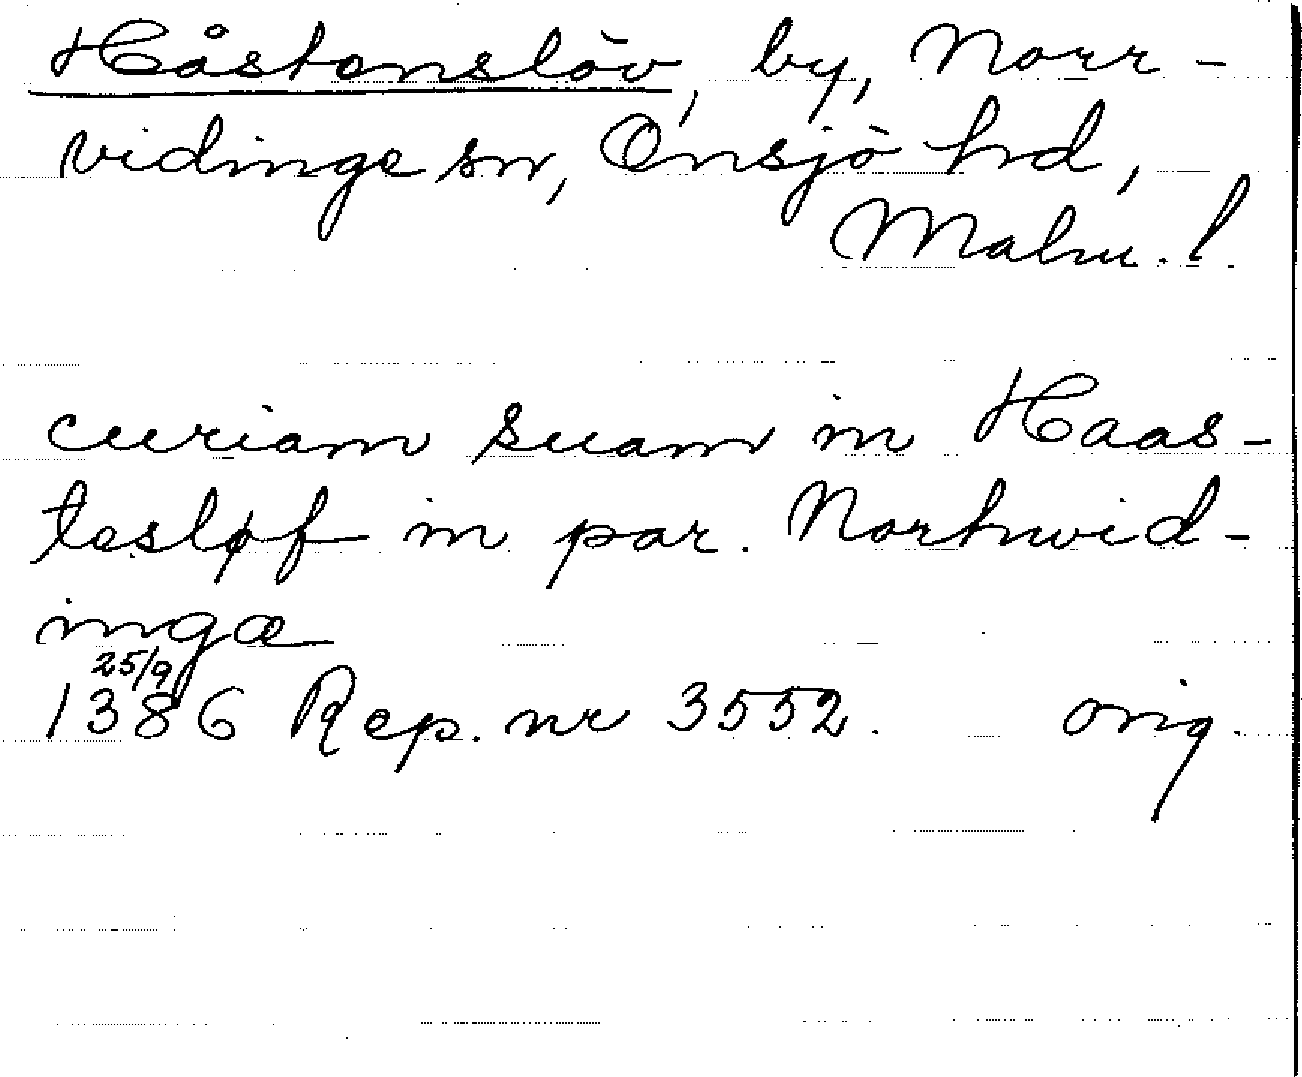 Håstenslöv, by, Norr-
vidinge sn, Onsjö hd,
Malm. l.
curiam suam in Haas-
tesløf in par. Northwid-
ingæ
25/9
1386 Rep. nr 3552. orig.